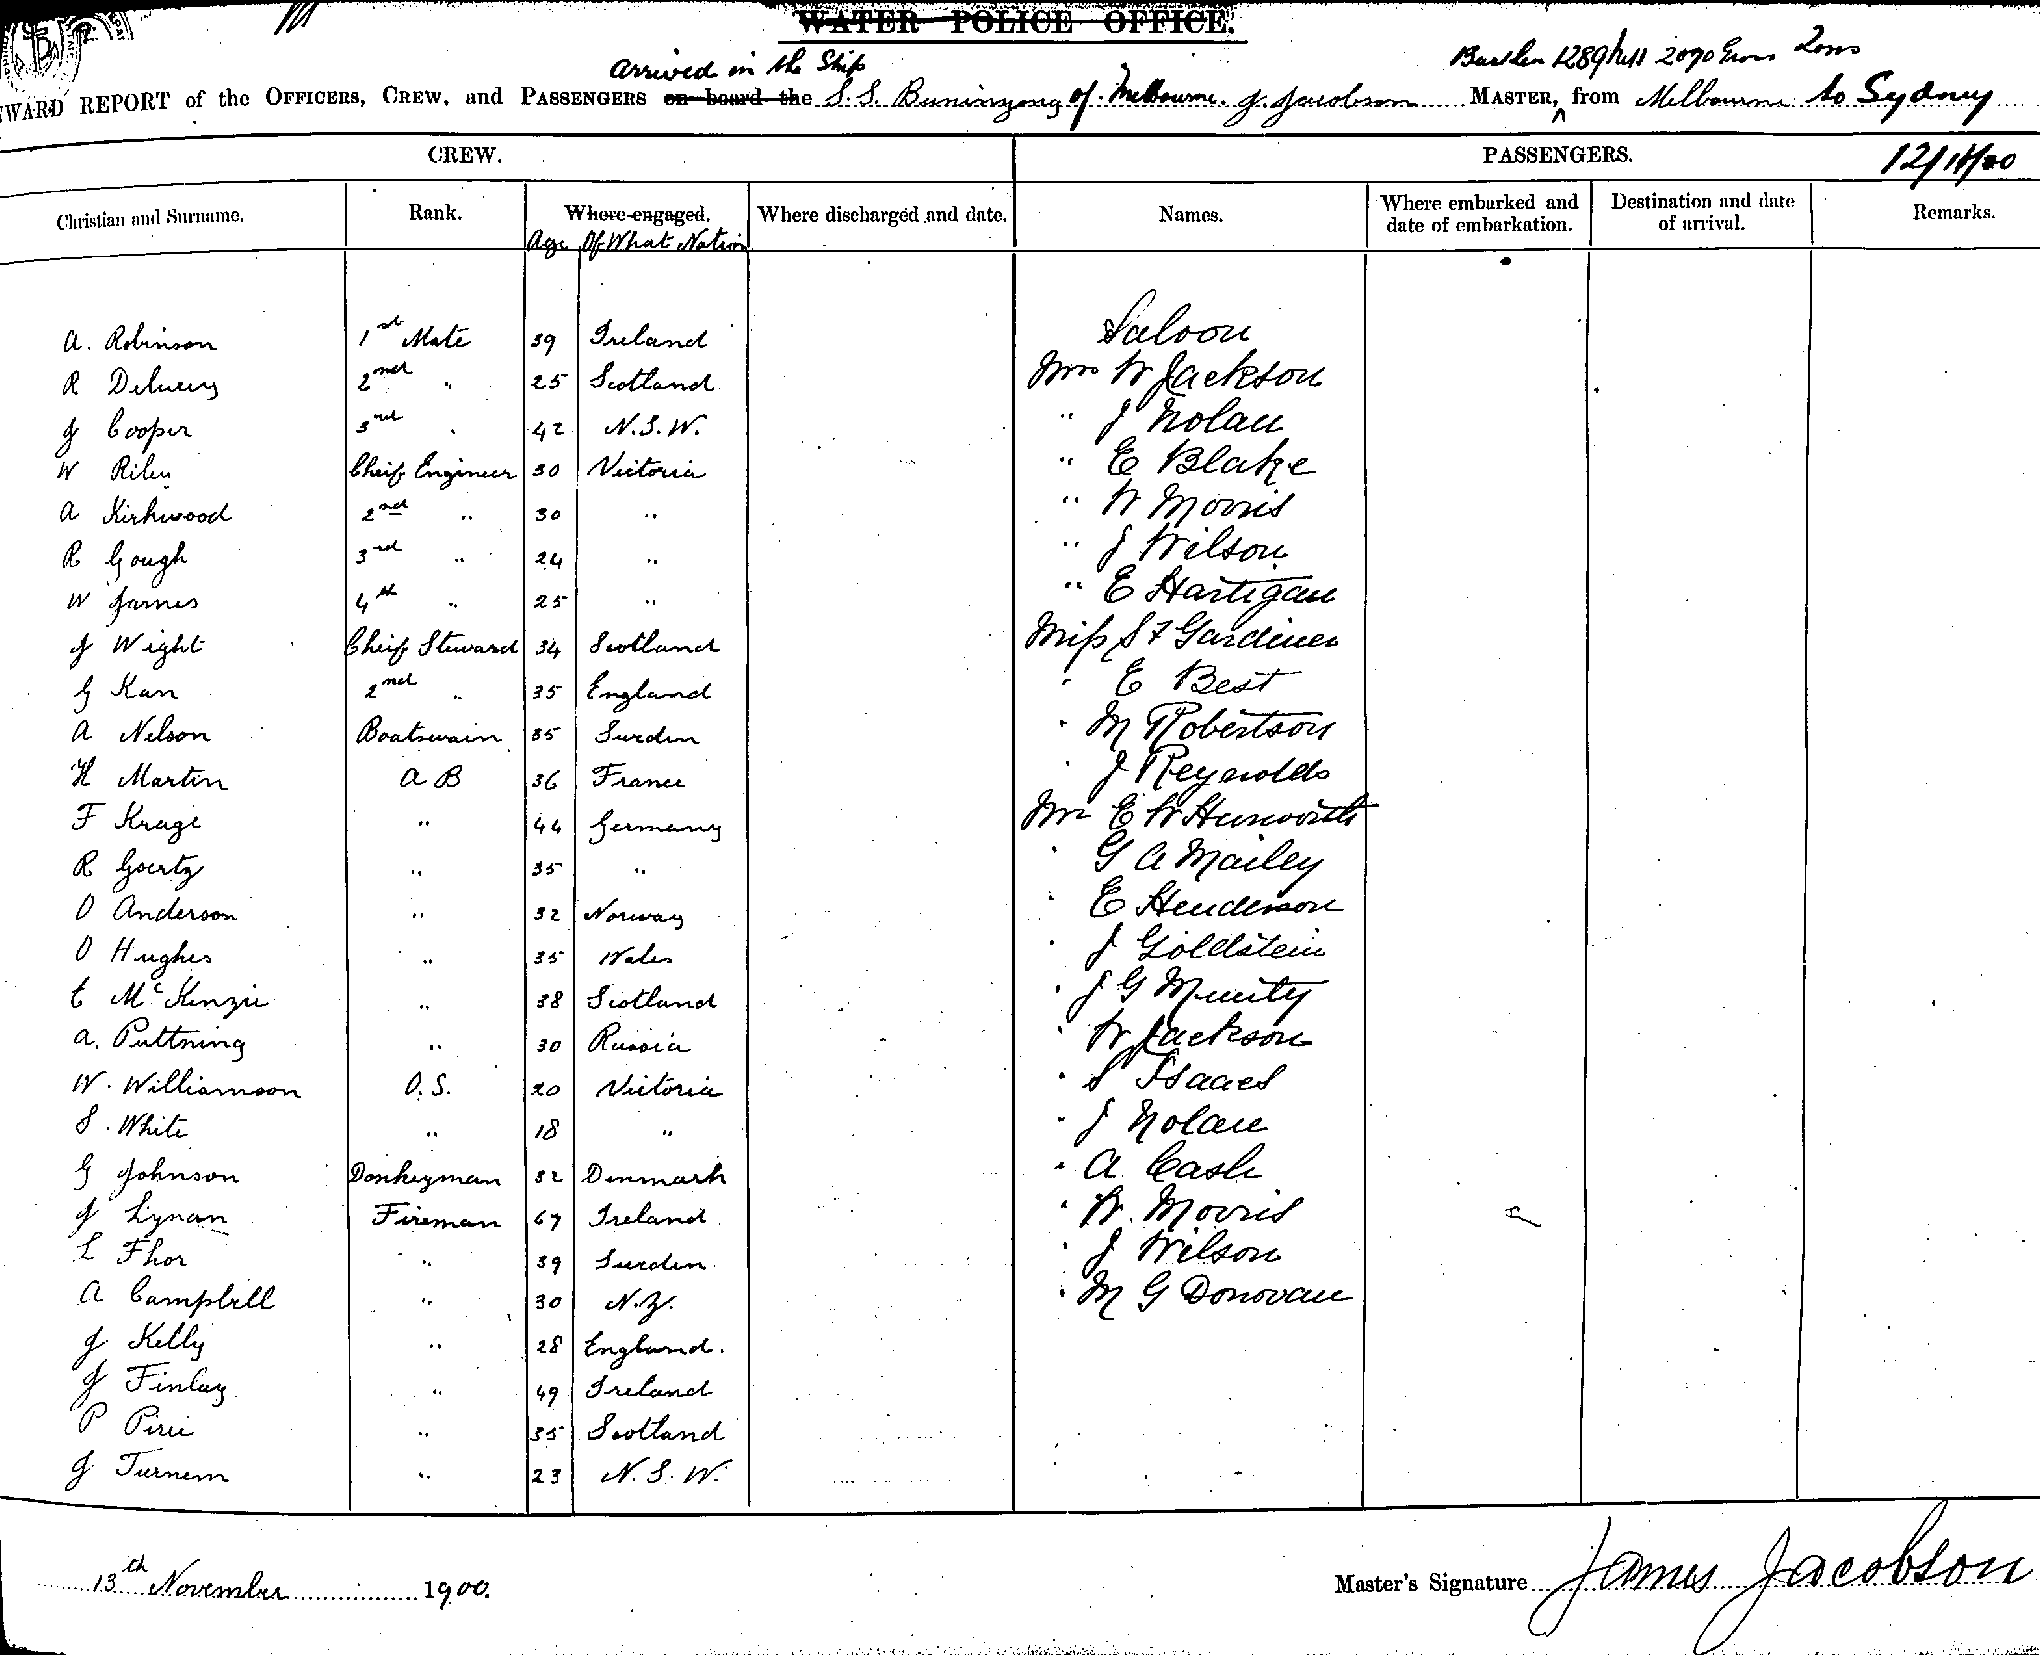 WATER POLICE OFFICE.
Arrived in the Ship
1289 2090 Gross Tons
WARD REPORT of the OFFICERS, CREW, and PASSENGERS on board the S.S. Buninyong of Melbourne. J. Jacobson MASTER, from Melbourne to Sydney
CREW. PASSENGERS. 12/11/00
Christian and Surname. Rank. Where engaged. Where discharged and date. Names. Where embarked and date of embarkation. Destination and date of arrival. Remarks.
Age Of What Nation
Saloon
A. Robinson 1st Mate 39 Ireland
R 2nd " 25 Scotland Mrs W Jackson
J Cooper 3rd " 42 N.S.W. " J Nolan
W Riley Cheif Engineer 30 Victoria " E Blake
A Kirkwood 2nd " 30 " " W Morris
R Gough 3rd " 24 " " J Wilson
W James 4th " 25 " " E Hartigan
J Wight Cheif Steward 34 Scotland Miss S F Gardiner
G Kan 2nd " 35 England " E Best
A Nelson Boatswain 35 Sweden " M Robertson
H Martin A B 36 France " J Reynolds
F Kruge " 44 Germany Mr E W
R Goertz " 35 " " G A Mailey
O Anderson " 32 Norway " E Henderson
O Hughes " 35 Wales " J Goldstein
E McKenzie " 38 Scotland " J G
A. Puttning " 30 Russia " W Jackson
W. Williamson O.S. 20 Victoria " S Isaacs
S. White " 18 " " J Nolan
G Johnson Donkeyman 32 Denmark " A Cash
J Lynam Fireman 67 Ireland " W. Morris
L Thor " 39 Sweden " J Wilson
A Campbell " 30 N.Z. " M G Donovan
J Kelly " 28 England.
J Finlay " 49 Ireland
P Pirie " 35 Scotland
J " 23 N.S.W.
13th November 1900. Master's Signature James Jacobson